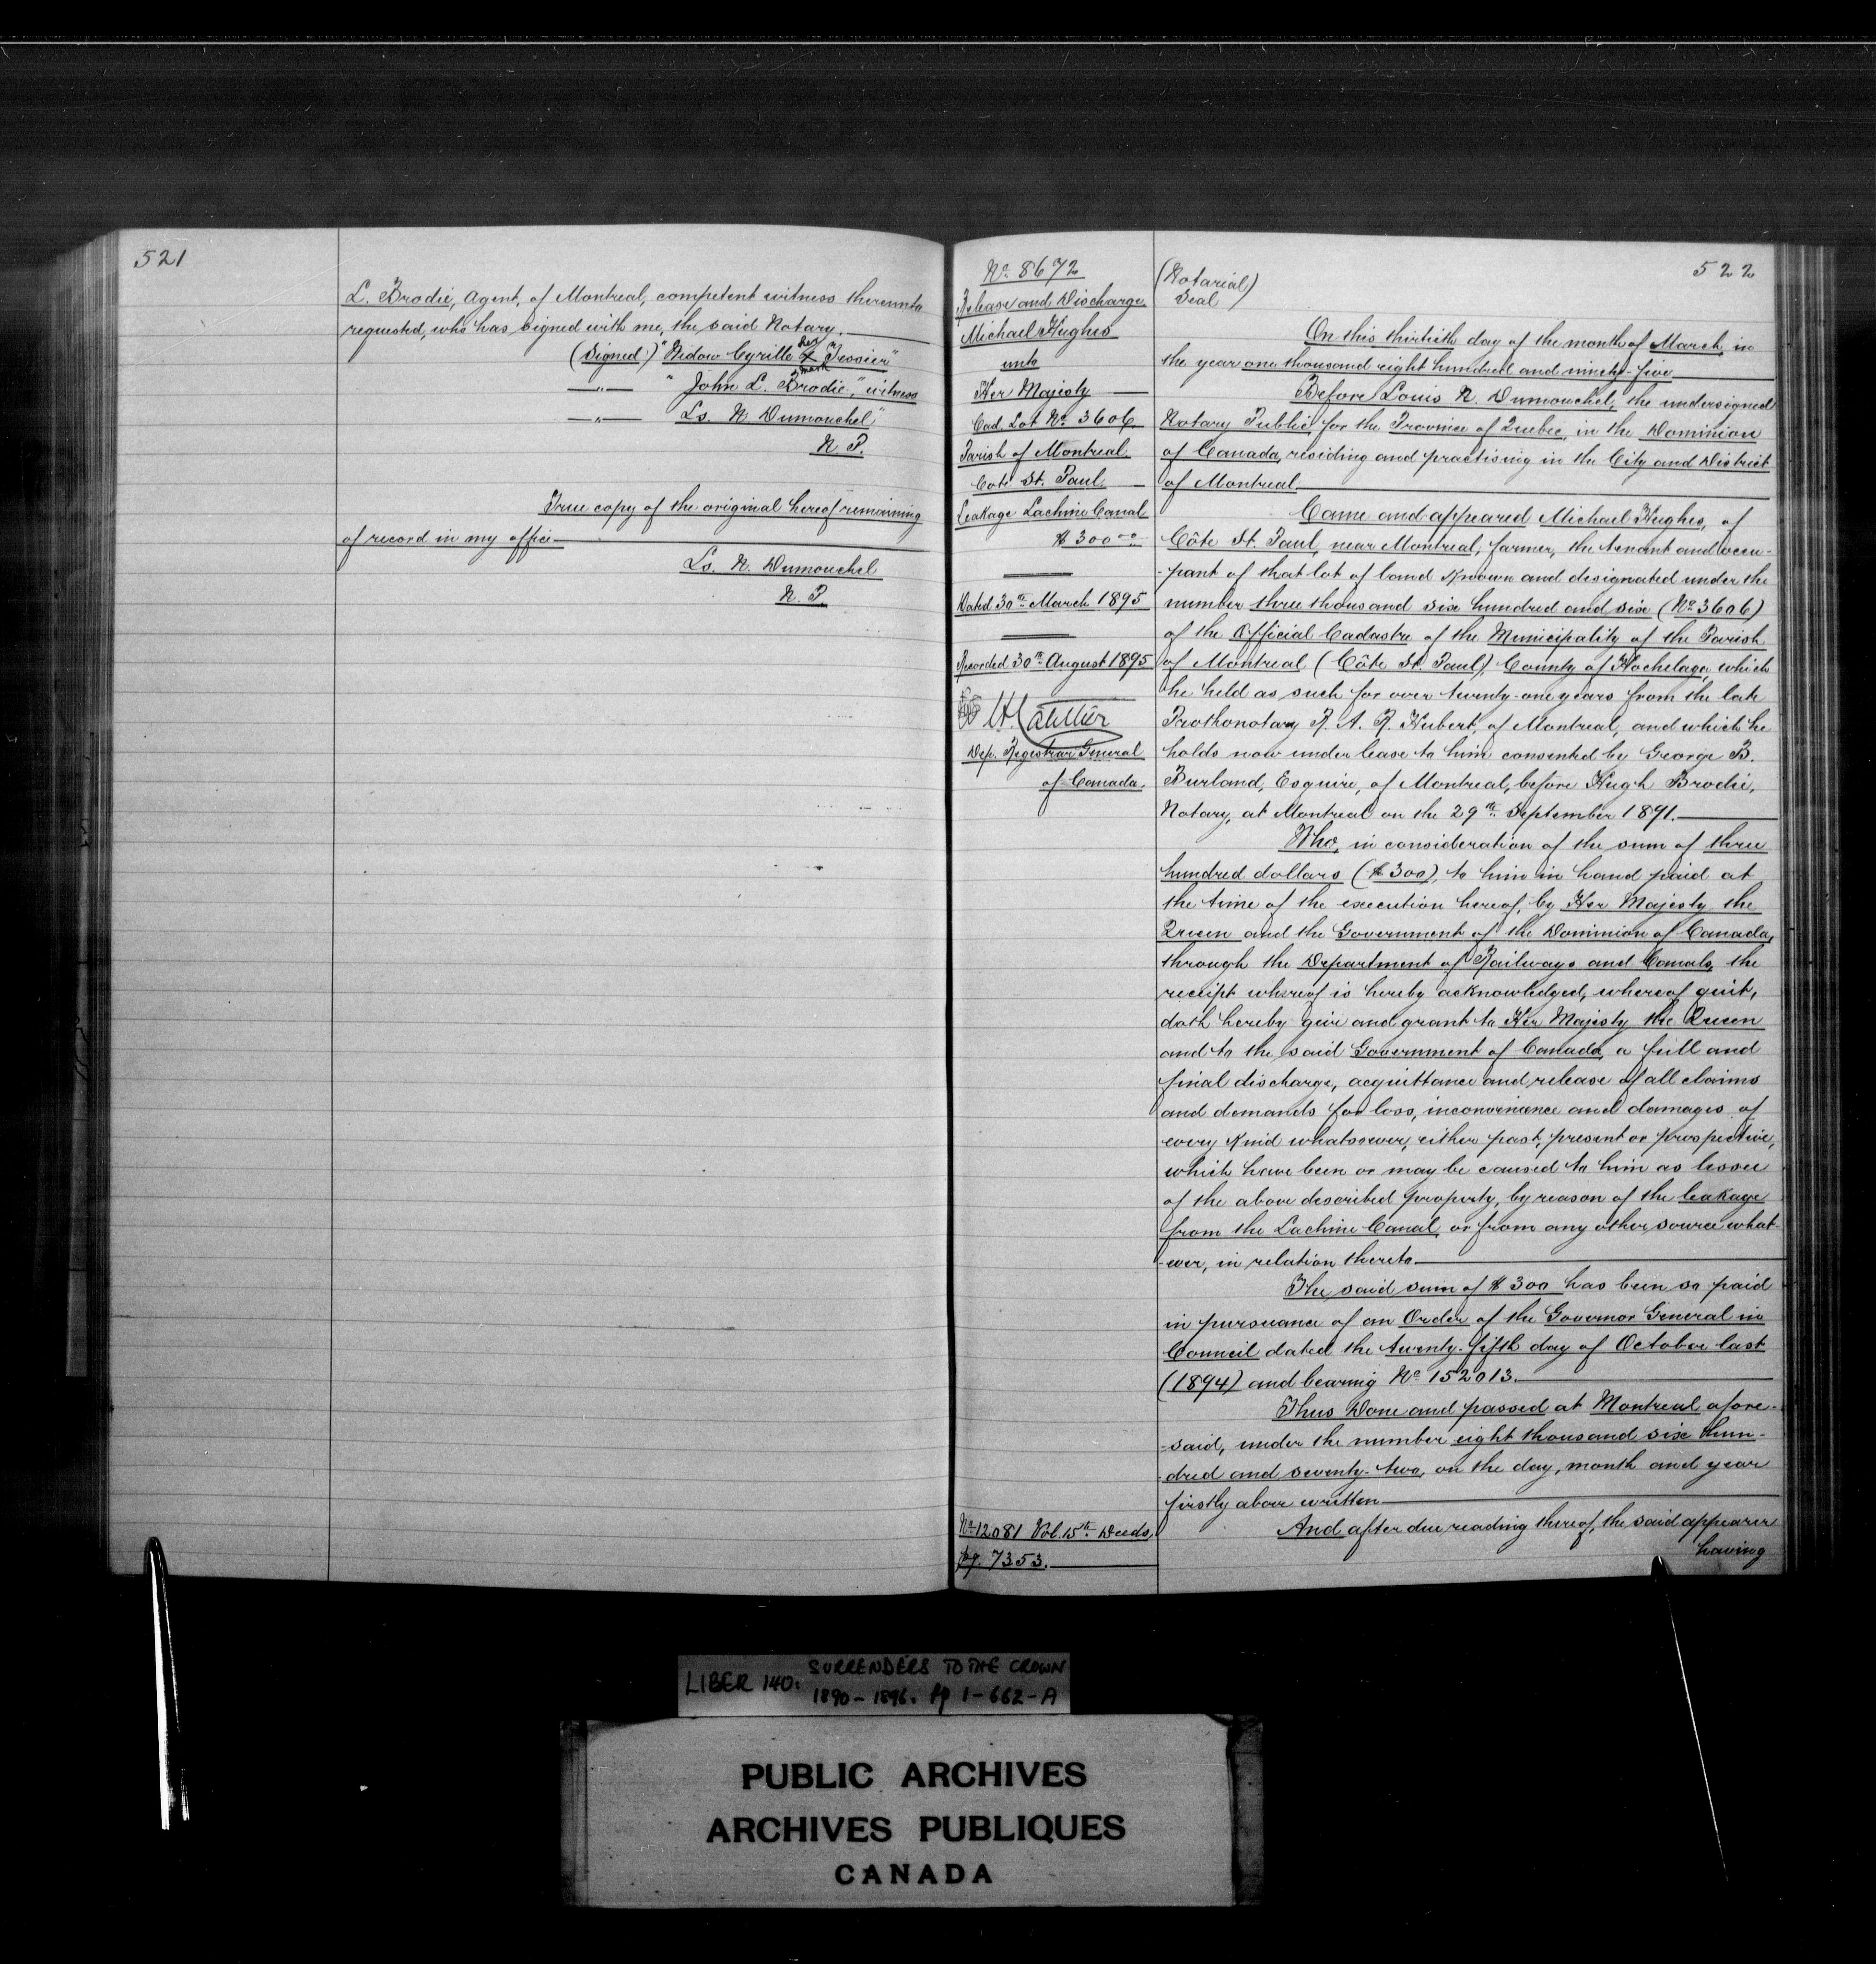 521
L. Brodie, Agent, of Montreal, competent witness thereunto
requested, who has signed with me, the said Notary.
(Signed) "Widow Cyrille her X mark Tessier"
—"— "John L. Brodie", witness
—"— Ls. N. Dumouchel"
N. P.
True copy of the original hereof remaining
of record in my office
Ls. N. Dumouchel
N. P.
522
No. 8672
Release and Discharge
Michael Hughes
unto
Her Majesty
Cad. Lot No. 3606
Parish of Montreal
Cote St. Paul
Leakage Lachine Canal
$300.00
Dated 30th March 1895
Recorded 30th August 1895
Dep. Registrar General
of Canada.
No. 12081 Vol. 15th Deeds,
pg. 7353.
(Notarial)
Seal
On this thirtieth day of the month of March, in
the year one thousand eight hundred and ninety-five
Before Louis N. Dumouchel, the undersigned
Notary Public for the Province of Quebec, in the Dominion
of Canada, residing and practising in the City and District
of Montreal
Came and appeared Michael Hughes, of
Côte St. Paul, near Montreal, farmer, the tenant and occu-
-pant of that lot of land known and designated under the
number three thousand six hundred and six (No. 3606)
of the Official Cadastre of the Municipality of the Parish
of Montreal (Côte St. Paul), County of Hochelaga, which
he held as such for over twenty-one years from the late
Prothonotary R. A. R. Hubert, of Montreal, and which he
holds now under lease to him consented by George B.
Burland, Esquire, of Montreal, before Hugh Brodie,
Notary, at Montreal on the 29th September 1891.
Who, in consideration of the sum of three
hundred dollars ($300), to him in hand paid at
the time of the execution hereof, by Her Majesty the
Queen and the Government of the Dominion of Canada,
through the Department of Railways and Canals, the
receipt whereof is hereby acknowledged, whereof quit,
doth hereby give and grant to Her Majesty the Queen
and to the said Government of Canada, a full and
final discharge, acquittance and release of all claims
and demands for loss, inconvenience and damages of
every kind whatsoever, either past, present or prospective,
which have been or may be caused to him as lessee
of the above described property, by reason of the leakage
from the Lachine Canal, or from any other source what-
-ever, in relation thereto.
The said sum of $300 has been so paid
in pursuance of an Order of the Governor General in
Council dated the twenty-fifth day of October last
(1894) and bearing No. 152013.
Thus Done and passed at Montreal afore-
-said, under the number eight thousand six hun-
-dred and seventy-two, on the day, month and year
firstly above written
And after due reading thereof, the said appearer
having
LIBER 140: SURRENDERS TO THE CROWN
1890-1896. pp 1-662-A
PUBLIC ARCHIVES
ARCHIVES PUBLIQUES
CANADA